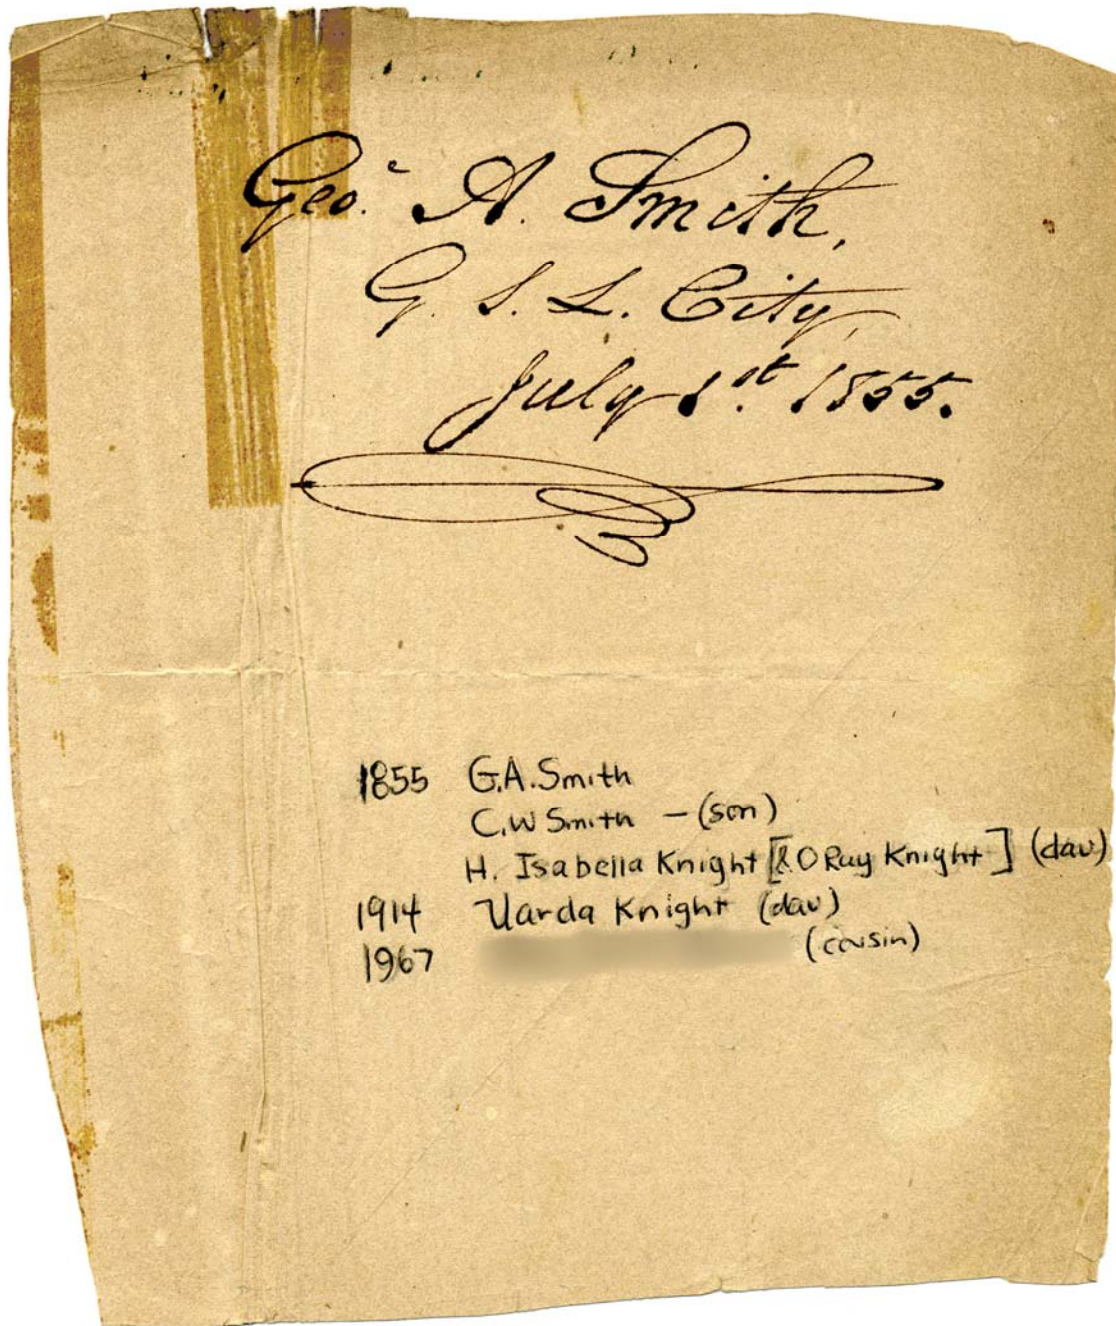 Geo. A. Smith,
G. S. L. City,
July 1st 1855.
1855 G.A. Smith
C.W Smith - (son)
H. Isabella Knight [& O Ray Knight] (dau)
1914 Uarda Knight (dau)
1967 (cousin)